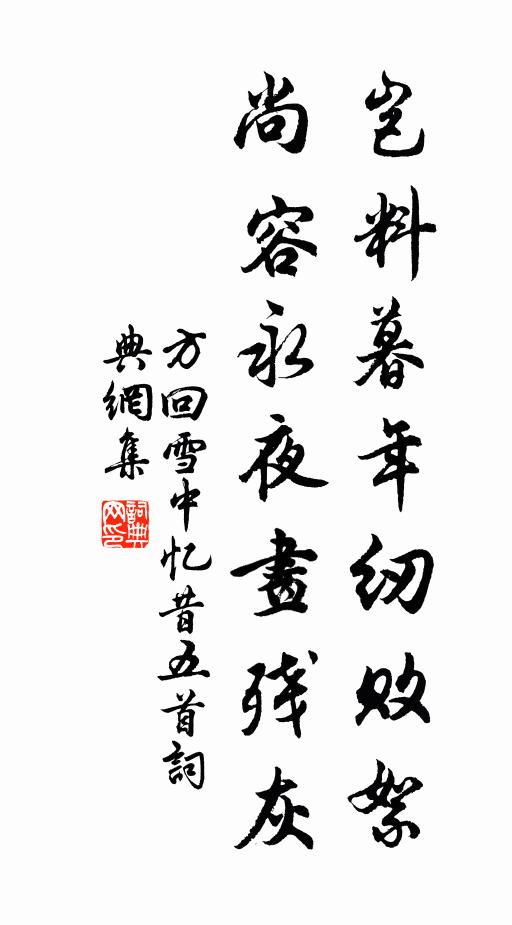 岂料暮年纫败絮
尚容永夜畫残灰
方回雪中忆昔五首詞
典網集
詞典
网印